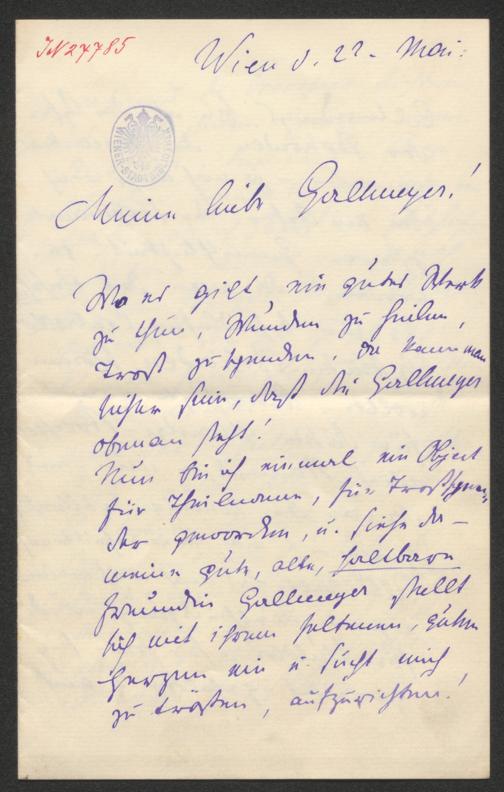 IN 27785
Wien d. 22. Mai.
WIENER STADTBIBLIOTHEK
Meine liebe Gallmeyer!
Wo es gilt ein gutes Werk
zu thun, Wunden zu heilen,
Trost zu spenden, da kann man
sicher sein, daß die Gallmeyer
obenan steht!
Nun bin ich einmal ein Object
für Theilname, für Trostspen-
der geworden, u. siehe da –
meine gute, alte,
Freundin Gallmeyer stellt
sich mit ihrem seltenen, guten
Herzen ein u. sucht mich
zu trösten, aufzurichten!